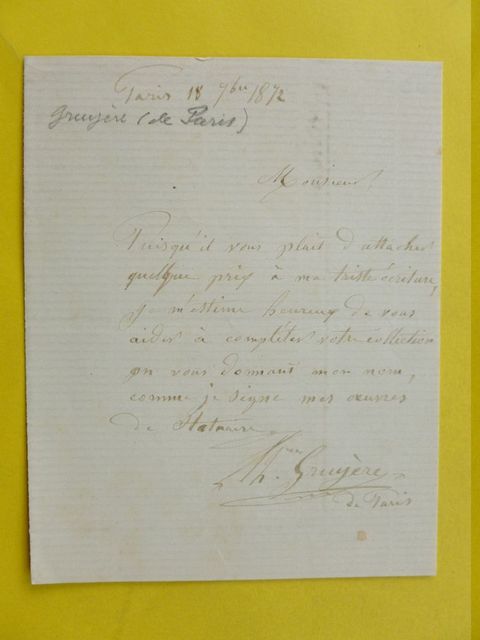 Paris 18 9bre 1872
Gruyère (de Paris)
Monsieur,
Puisqu'il vous plait d'attacher
quelque prix à ma triste écriture,
je m'estime heureux de vous
aider à compléter votre collection
en vous donnant mon nom,
comme je signe mes œuvres
de Statuaire.
Th. Gruyère
de Paris